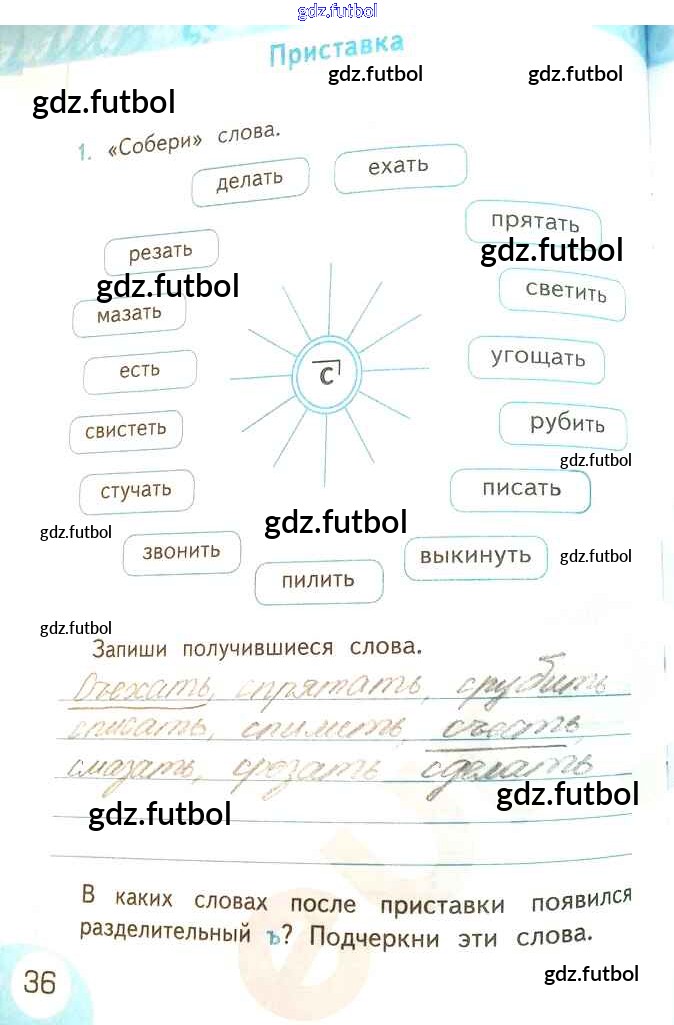 gdz.futbol
Приставка
gdz.futbol
gdz.futbol
gdz.futbol
1. «Собери» слова.
делать
ехать
прятать
резать
gdz.futbol
gdz.futbol
светить
gdz.futbol
мазать
угощать
есть
с
рубить
свистеть
gdz.futbol
писать
стучать
gdz.futbol
gdz.futbol
звонить
выкинуть
gdz.futbol
пилить
gdz.futbol
Запиши получившиеся слова.
Съехать, спрятать, срубить
списать, спилить, съесть,
смазать, срезать сделать
gdz.futbol
gdz.futbol
В каких словах после приставки появился
разделительный ъ? Подчеркни эти слова.
36
gdz.futbol